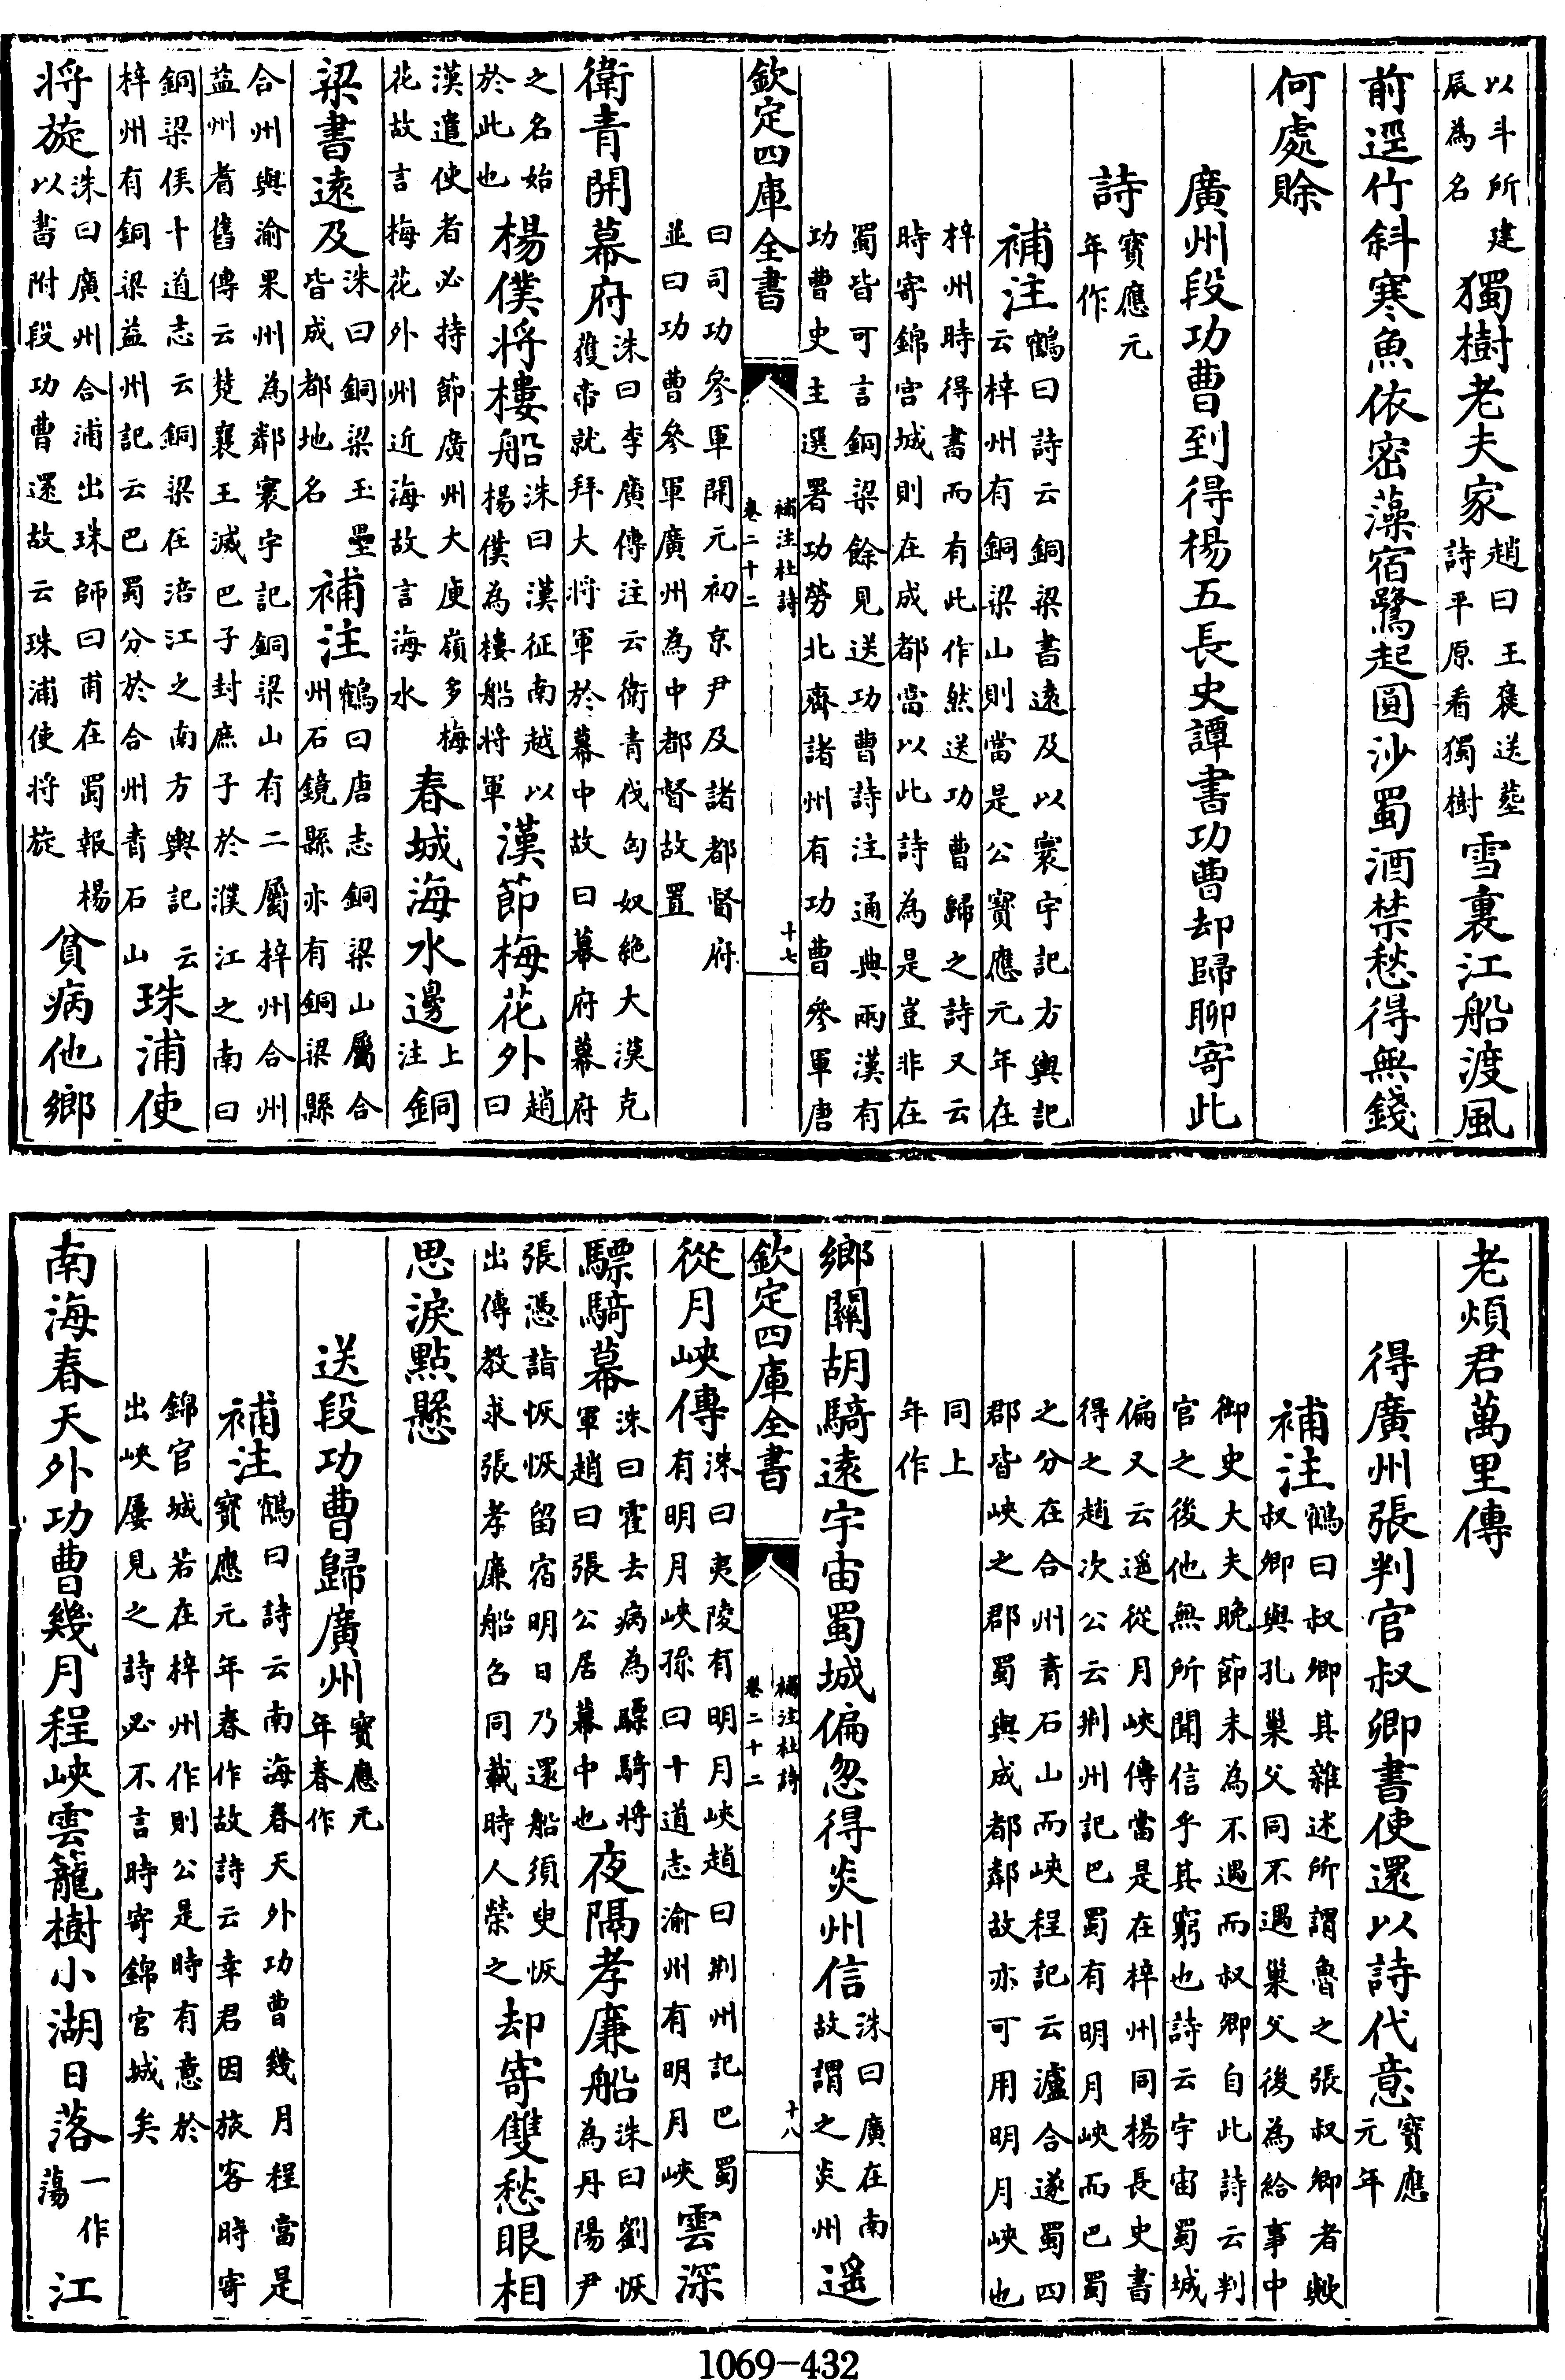 以斗所建辰為名獨樹老夫家趙曰王褒送塟詩平原看獨樹雪裏江船渡風
前逕竹斜寒魚依密藻宿鷺起圓沙蜀酒禁愁得無錢
何處賒
廣州段功曹到得楊五長史譚書功曹却歸聊寄此
詩寶應元年作
補注鶴曰詩云銅梁書遠及以寰宇記方輿記云梓州有銅梁山則當是公寶應元年在
梓州時得書而有此作然送功曹歸之詩又云時寄錦官城則在成都當以此詩為是豈非在
蜀皆可言銅梁餘見送功曹詩注通典兩漢有功曹史主選署功勞北齊諸州有功曹參軍唐
欽定四庫全書 補注杜詩卷二十二 十七
曰司功參軍開元初京尹及諸都督府並曰功曹參軍廣州為中都督故置
衛青開幕府洙曰李廣傳注云衛青伐匈奴絶大漠克獲帝就拜大將軍於幕中故曰幕府幕府
之名始於此也楊僕將樓船洙曰漢征南越以楊僕為樓船將軍漢節梅花外趙曰
漢遣使者必持節廣州大庾嶺多梅花故言梅花外州近海故言海水春城海水邊上注銅
梁書遠及洙曰銅梁玉壘皆成都地名補注鶴曰唐志銅梁山屬合州石鏡縣亦有銅梁縣
合州與渝果州為鄰寰宇記銅梁山有二屬梓州合州益州耆舊傳云楚襄王滅巴子封庶子於濮江之南曰
銅梁侯十道志云銅梁在涪江之南方輿記云梓州有銅梁益州記云巴蜀分於合州青石山珠浦使
將旋洙曰廣州合浦出珠師曰甫在蜀報楊以書附段功曹還故云珠浦使將旋貧病他鄉
老煩君萬里傳
得廣州張判官叔卿書使還以詩代意寶應元年
補注鶴曰叔卿其雜述所謂魯之張叔卿者歟叔卿與孔巢父同不遇巢父後為給事中
御史大夫晚節未為不遇而叔卿自此詩云判官之後他無所聞信乎其窮也詩云宇宙蜀城
偏又云遥從月峽傳當是在梓州同楊長史書得之趙次公云荆州記巴蜀有明月峽而巴蜀
之分在合州青石山而峽程記云瀘合遂蜀四郡皆峽之郡蜀與成都鄰故亦可用明月峽也
同上年作
鄉關胡騎遠宇宙蜀城偏忽得炎州信洙曰廣在南故謂之炎州遥
欽定四庫全書 補注杜詩卷二十二 十八
從月峽傳洙曰夷陵有明月峽趙曰荆州記巴蜀有明月峽孫曰十道志渝州有明月峽雲深
驃騎幕洙曰霍去病為驃騎將軍趙曰張公居幕中也夜隔孝廉船洙曰劉恢為丹陽尹
張憑詣恢恢留宿明日乃還船須臾恢出傳教求張孝廉船召同載時人榮之却寄雙愁眼相
思淚點懸
送段功曹歸廣州寶應元年春作
補注鶴曰詩云南海春天外功曹幾月程當是寶應元年春作故詩云幸君因旅客時寄
錦官城若在梓州作則公是時有意於出峽屢見之詩必不言時寄錦官城矣
南海春天外功曹幾月程峽雲籠樹小湖日落一作蕩江
1069-432